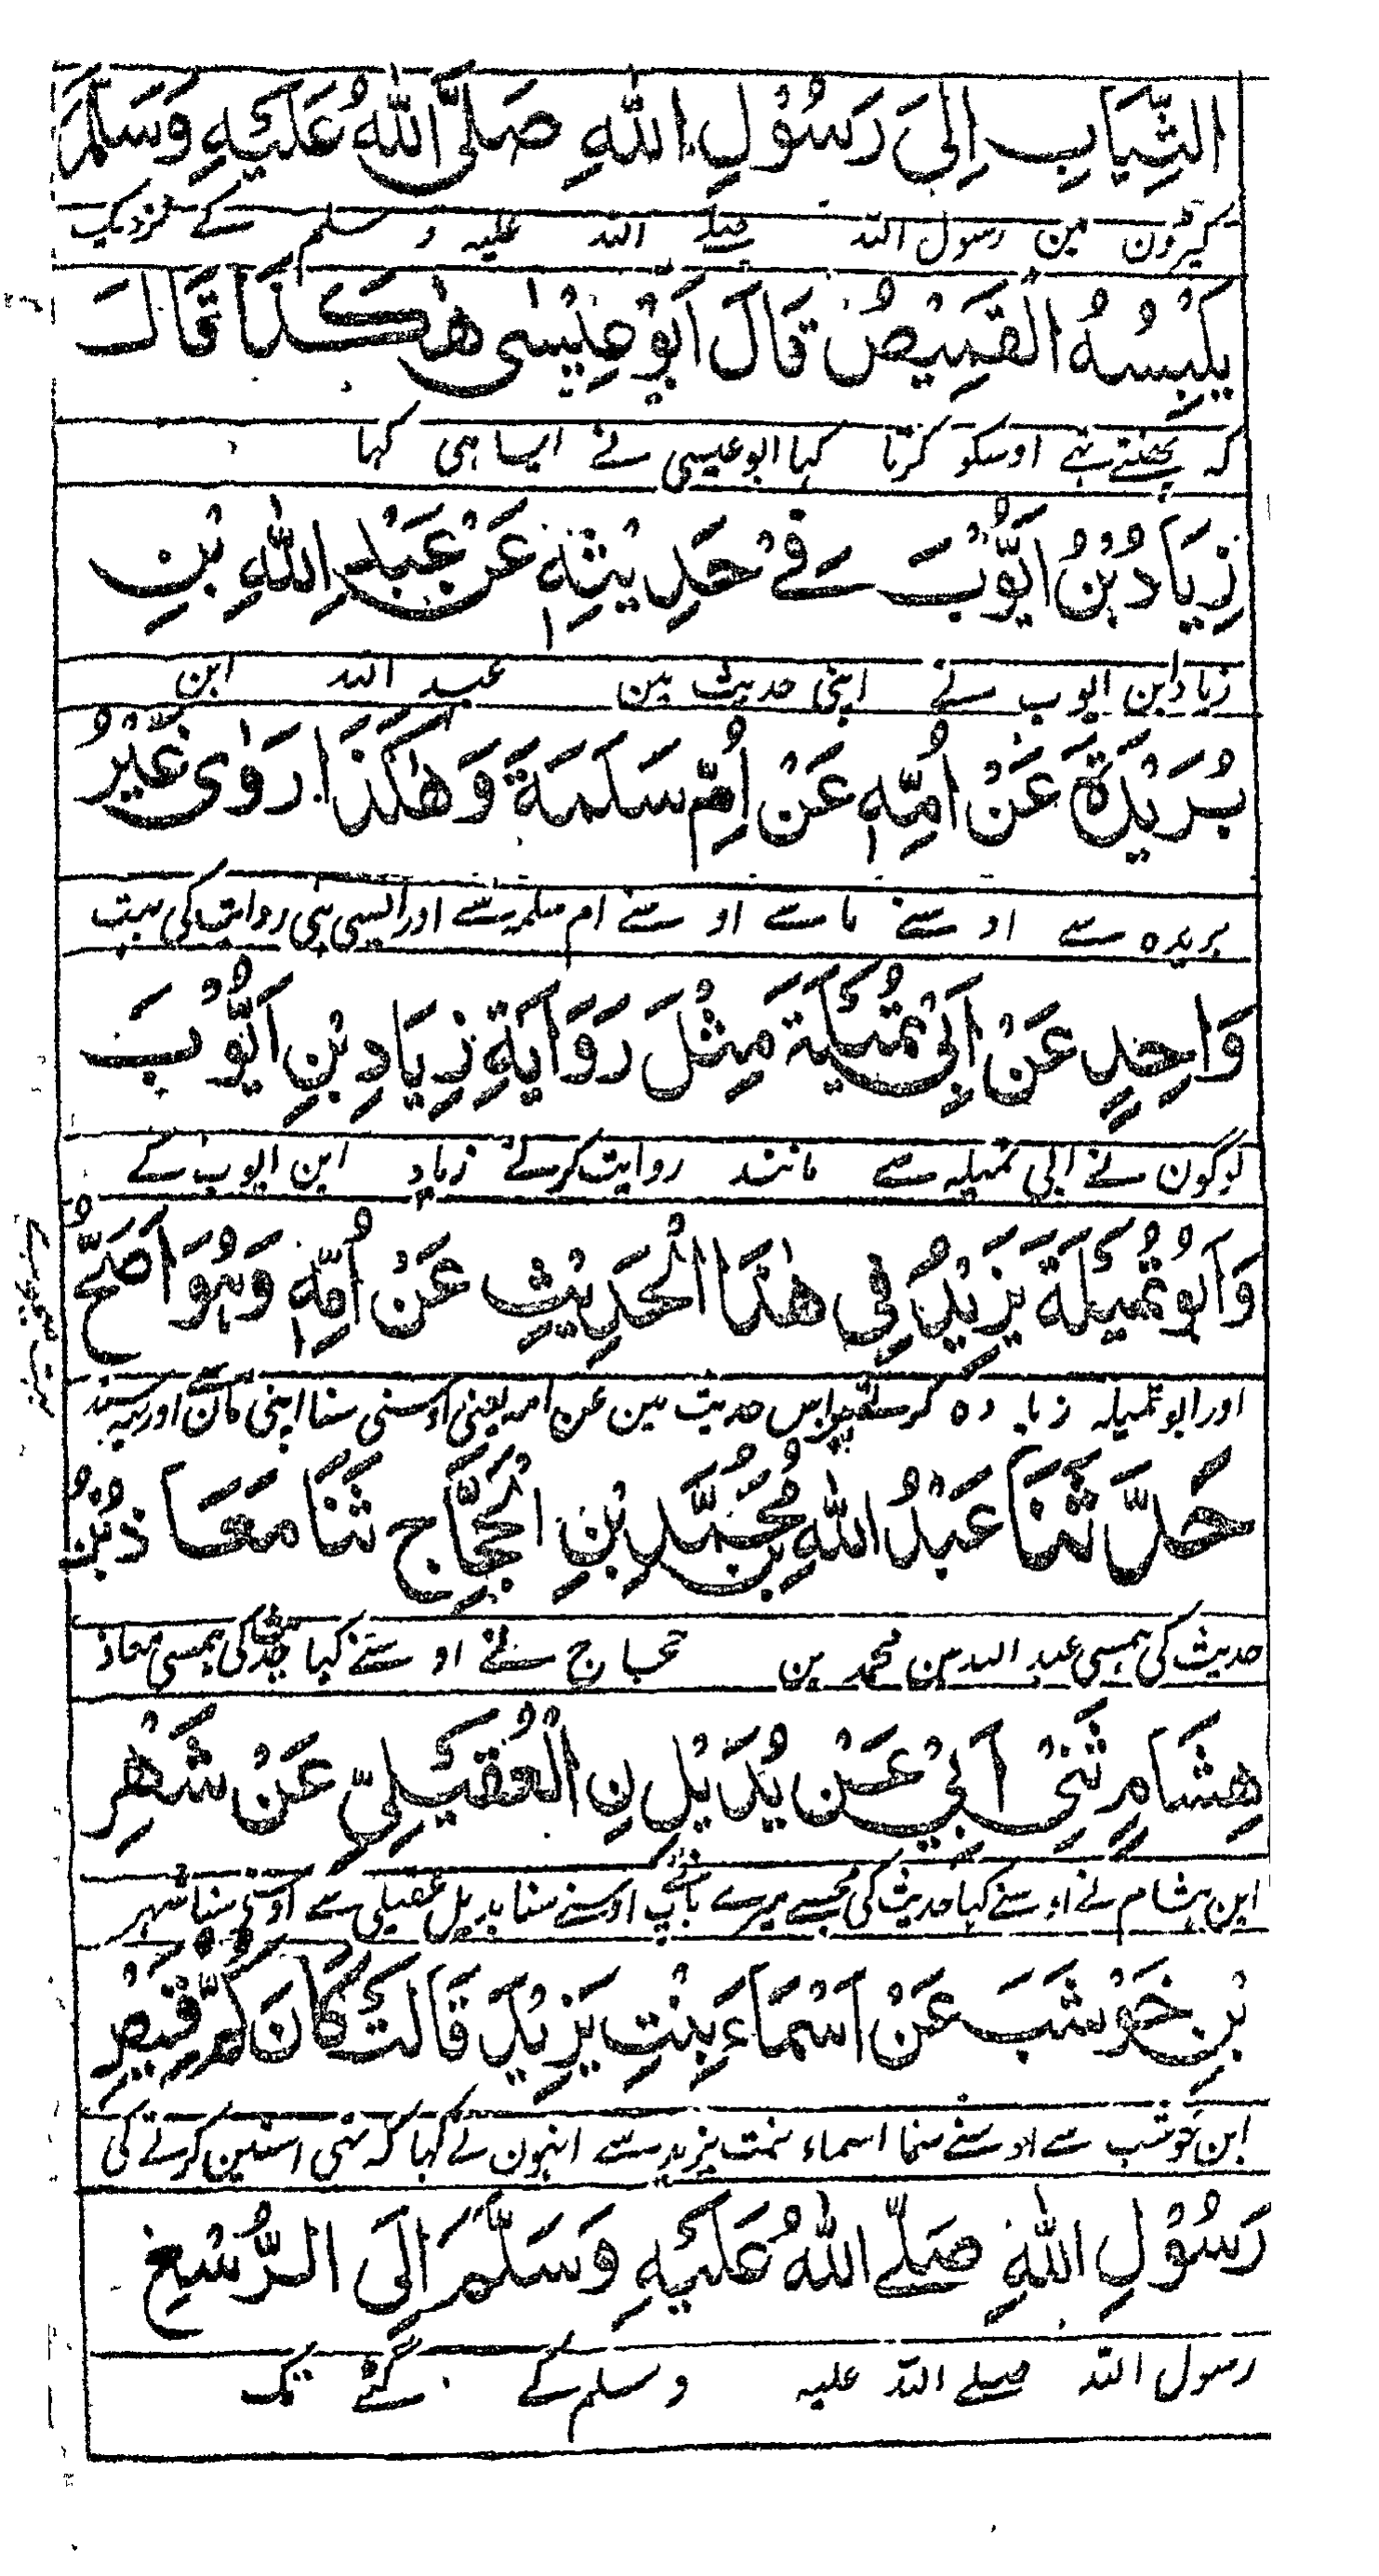 الثِّيَابِ اِلٰى رَسُوْلِ اللّٰهِ صَلَّى اللّٰهُ عَلَيْهِ وَسَلَّمَ
كپڑون مين رسول الله صلے الله عليہ و سلم كے نزديك
يَلْبَسُهُ الْقَمِيْصُ قَالَ اَبُوْ عِيْسٰى هٰكَذَا قَالَ
كہ پهنتے تہے اوسكو كرتا كہا ابو عيسى نے ايسا ہى كہا
زِيَادُ بْنُ اَيُّوْبَ فِےْ حَدِيْثِهٖ عَنْ عَبْدِ اللّٰهِ بْنِ
زياد ابن ايوب نے اپنى حديث مين عبد الله ابن
بُرَيْدَةَ عَنْ اُمِّهٖ عَنْ اُمِّ سَلَمَةَ وَهٰكَذَا رَوٰى غَيْرُ
بريده سے او سنے ما سے او سنے ام سلمہ سے اور ايسى ہى روايت كى بہت
وَاحِدٍ عَنْ اَبِىْ تُمَيْلَةَ مِثْلَ رَوَايَةِ زِيَادِ بْنِ اَيُّوْبَ
لوگون نے ابى تميلہ سے مانند روايت كرنے زياد ابن ايوب كے
وَاَبُوْ تُمَيْلَةَ يَزِيْدُ فِى هٰذَا الْحَدِيْثِ عَنْ اُمِّهٖ وَهُوَ اَصَحُّ
اور ابو تميلہ زيا ده كرتے اس حديث مين عن امہ يعنى اوسنى سنا اپنى مان سے اور يہ سند
حَدَّثَنَا عَبْدُ اللّٰهِ بْنُ مُحَمَّدِ بْنِ الْحَجَّاجِ ثَنَا مَعَاذُ بْنُ
حديث كى ہمسى عبد الله بن محمد بن حجاج نے او سنے كہا حديث كى ہمسى معاذ
هِشَامٍ ثَنِىْ اَبِىْ عَنْ بُدَيْلِ نِ الْعُقَيْلِىِّ عَنْ شَهْرِ
ابن ہشام نے او سنے كہا حديث كى مجسے ميرے باپ نے اوسنے سنا بديل عقيلى سے اوسنى سنا شہر
بْنِ حَوْشَبَ عَنْ اَسْمَاءَ بِنْتِ يَزِيْدَ قَالَتْ كَانَ كُمُّ قَمِيْصِ
ابن حوشب سے او سنے سنا اسماء بنت يزيد سے انہون نے كہا كہ تہى استين كرتے كى
رَسُوْلِ اللّٰهِ صَلّے اللّٰهُ عَلَيْهِ وَسَلَّمَ اِلَى الرُّسْغِ
رسول الله صلے الله عليہ و سلم كے گٹے تك